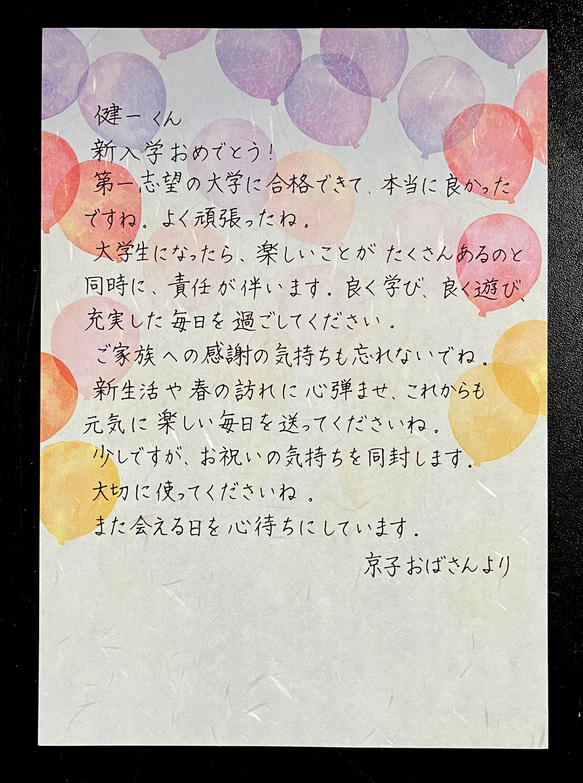 健一くん
新入学おめでとう!
第一志望の大学に合格できて、本当に良かった
ですね。よく頑張ったね。
大学生になったら、楽しいことがたくさんあるのと
同時に、責任が伴います。良く学び、良く遊び、
充実した毎日を過ごしてください。
ご家族への感謝の気持ちも忘れないでね。
新生活や春の訪れに心弾ませ、これからも
元気に楽しい毎日を送ってくださいね。
少しですが、お祝いの気持ちを同封します。
大切に使ってくださいね。
また会える日を心待ちにしています。
京子おばさんより